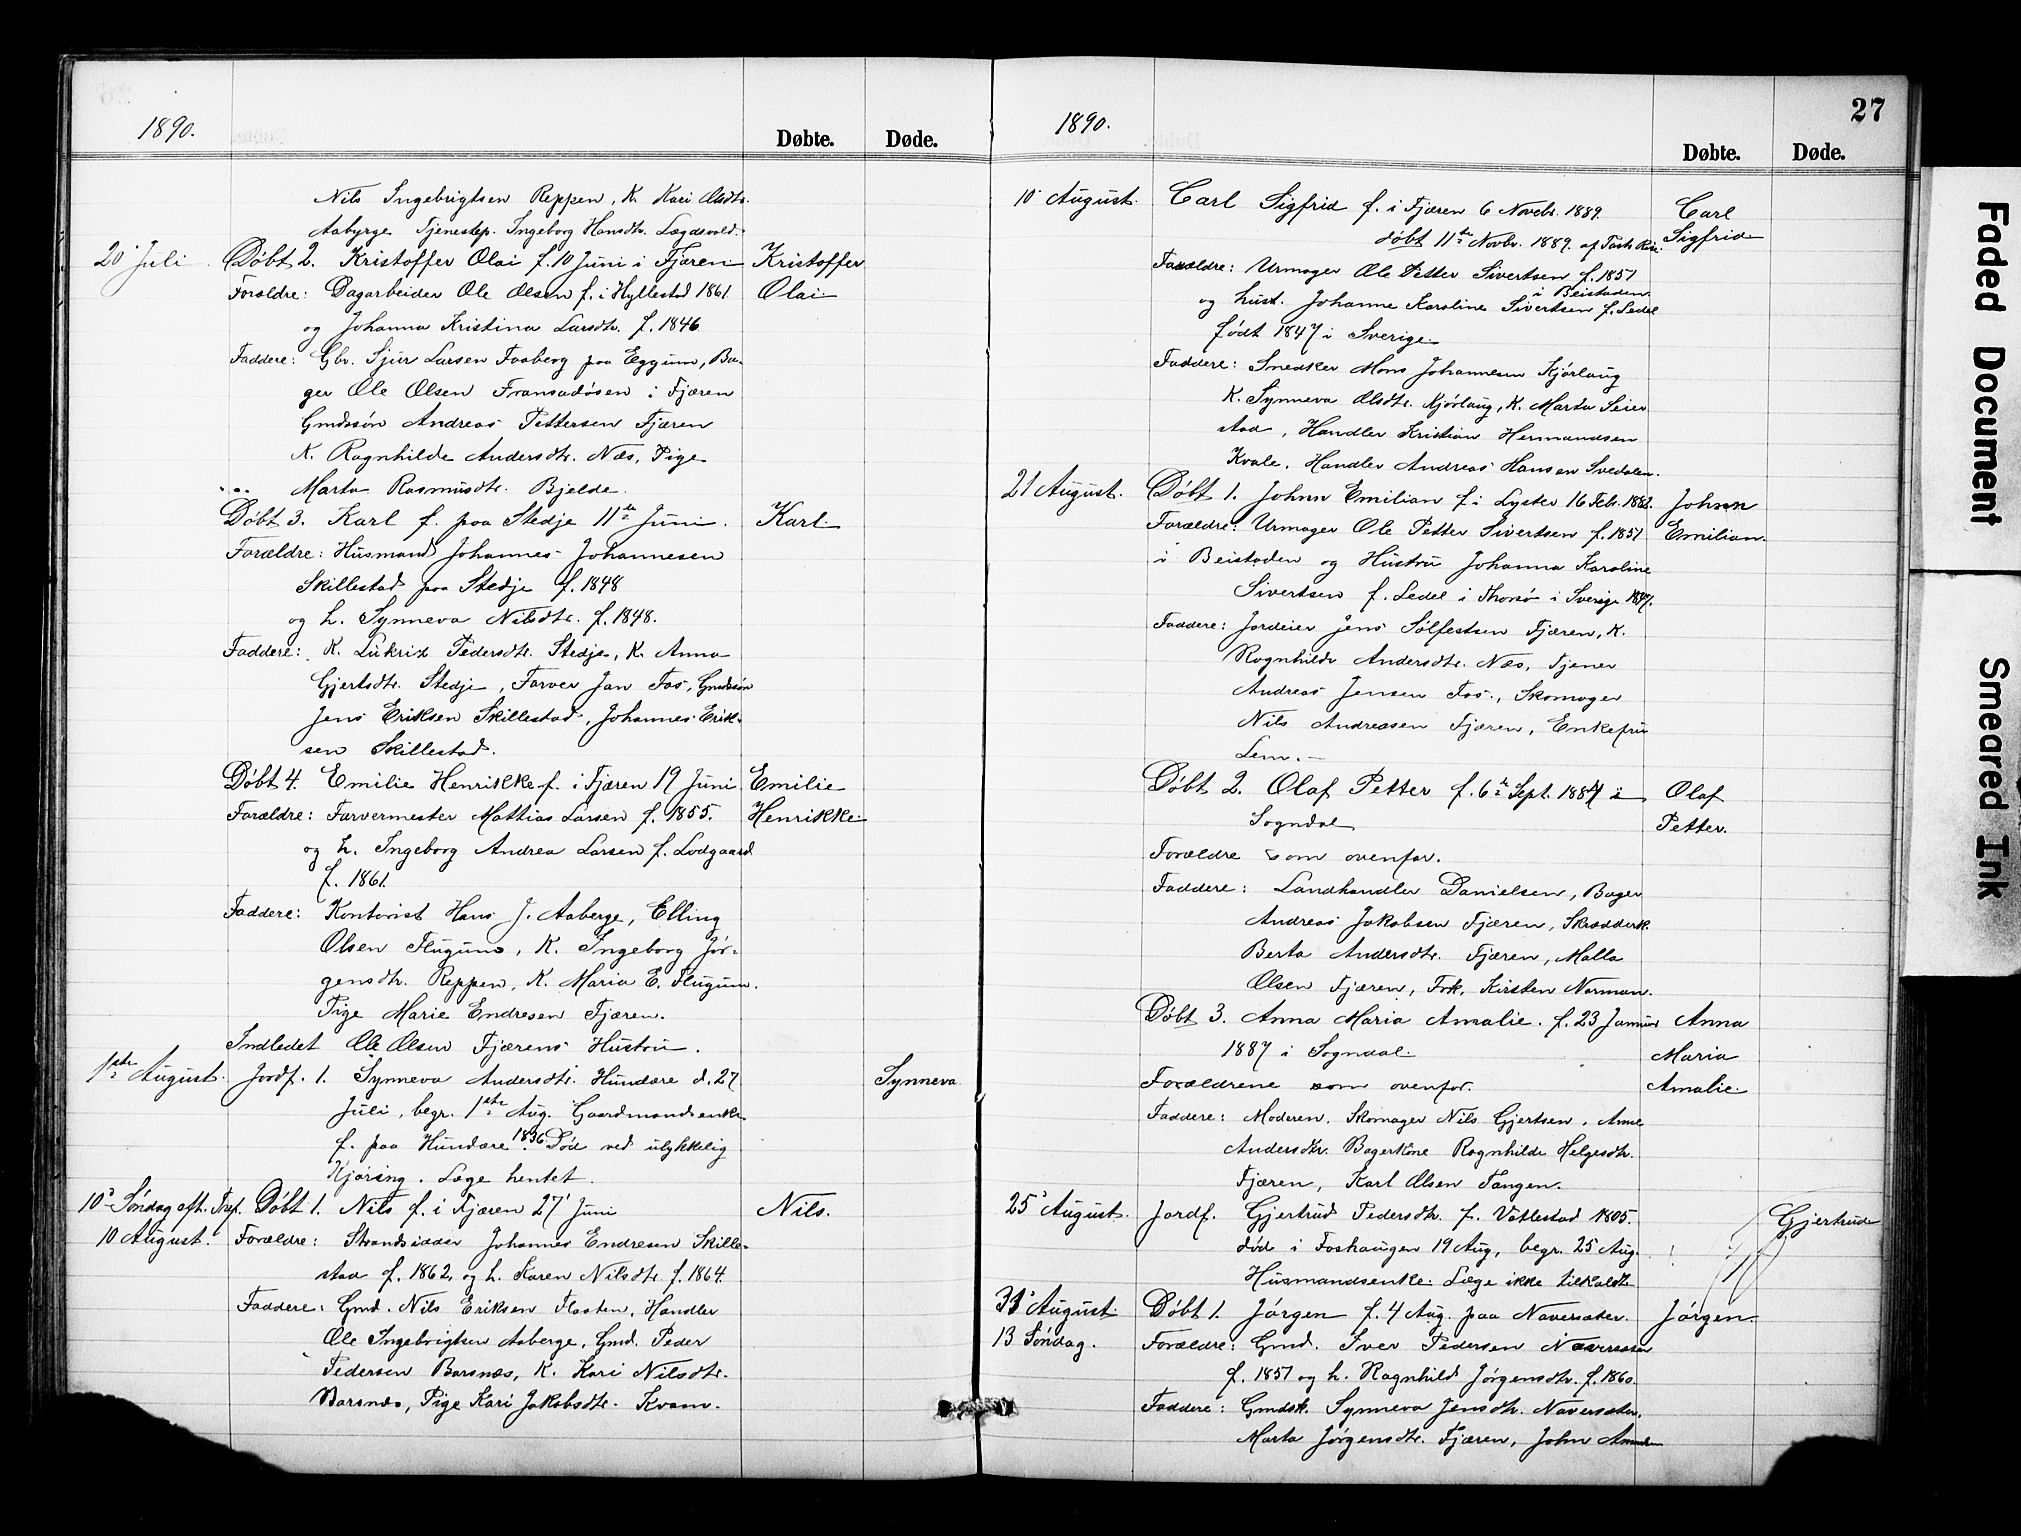 1890.
Døbte.
Døde.
Nils Ingebrigtsen Reppen, K. Kari Olsdtr.
Aabyrge Tjenestep. Ingeborg Hansdtr. Lægdsvold.
20 Juli
Døbt 2. Kristoffer Olai f. 10 Juni i Fjæren
Kristoffer
Forældre: Dagarbeider Ole Olsen f. i Hyllestad 1861.
Olai
og Johanna Kristina Larsdtr. f. 1846
Faddere: Gbr. Sjur Larsen Faaberg paa Eggum, Ba-
ger Ole Olsen Fransadøsen i Fjæren
Gmdssøn Andreas Pettersen Fjæren
K. Ragnhilde Andersdtr. Næs, Pige
Marta Rasmusdtr. Bjelde.
Døbt 3. Karl f. paa Stedje 11te Juni.
Karl
Forældre: Husmand Johannes Johannesen
Skillestad paa Stedje f. 1848
og h. Synneva Nilsdtr. f. 1848.
Faddere: K. Lukris Pedersdtr. Stedje, K. Anna
Gjertsdtr. Stedje, Farver Jan Fos, Gmdssøn
Jens Eriksen Skillestad, Johannes Erik-
sen Skillestad.
Døbt 4. Emilie Henrikke f. i Fjæren 19 Juni
Emilie
Forældre: Farvermester Mattias Larsen f. 1855.
Henrikke
og h. Ingeborg Andrea Larsen f. Lodgaard
f. 1861.
Faddere: Kontorist Hans J. Aaberge, Elling
Olsen Flugum, K. Ingeborg Jør-
gensdtr. Reppen, K. Maria E. Flugum.
Pige Marie Endresen Fjæren.
Indledet Ole Olsen Fjærens Hustru.
1ste August.
Jordf. 1. Synneva Andersdtr. Hundere d. 27
Synneva
Juli, begr. 1ste Aug. Gaardmandsenke
f. paa Hundere 1836. Død ved ulykkelig
Kjøring. Læge hentet.
10d Søndag eft. Tref.
Døbt 1. Nils f. i Fjæren 27 Juni
Nils.
10 August.
Forældre: Strandsidder Johannes Endresen Skille-
stad f. 1862 og h. Karen Nilsdtr. f. 1864.
Faddere: Gmd. Nils Eriksen Flaaten, Handler
Ole Ingebrigtsen Aaberge, Gmd. Peder
Pedersen Barsnæs, K. Kari Nilsdtr.
Barsnæs, Pige Kari Jakobsdtr. Kvam.
1890.
27
Døbte.
Døde.
10 August.
Carl Sigfrid f. i Fjæren 6 Novebr. 1889.
Carl
døbt 11te Novbr. 1889. af
Sigfrid
Forældre: Urmager Ole Petter Sivertsen f. 1851
i Beistaden
og hust. Johanne Karoline Sivertsen f. Ledel
født 1847 i Sverige
Faddere: Snedker Mons Johannesen Kjørlaug
K. Synneva Olsdtr. Kjørlaug, K. Marta Seier
stad, Handler Kristian Hermandsen
Kvale, Handler Andreas Hansen Svedalen.
21 August.
Døbt 1. Johan Emilian f. i Lyster 16 Febr. 1882.
Johan
Forældre: Urmager Ole Petter Sivertsen f. 1851
Emilian.
i Beistaden og Hustru Johanna Karoline
Sivertsen f. Ledel i Thorsø i Sverige 1847.
Faddere: Jordeier Jens Sølfestsen Fjæren, K.
Ragnhilde Andersdtr. Næs, Tjener
Andreas Jensen Fos, Skomager
Nils Andreasen Fjæren, Enkefru
Lem.
Døbt 2. Olaf Petter f. 6te Sept. 1884 i
Olaf
Sogndal
Petter.
Forældre som ovenfor.
Faddere: Landhandler Danielsen, Bager
Andreas Jakobsen Fjæren, Skrædderk.
Berta Andersdtr. Fjæren, Malla
Olsen Fjæren, Frk. Kirsten Norman.
Døbt 3. Anna Maria Amalie. f. 23 Januar
Anna
1887 i Sogndal.
Maria
Forældrene som ovenfor.
Amalie.
Faddere: Moderen, Skomager Nils Gjertsen, Anne
Andersdtr. Bagerkone Ragnhilde Helgesdtr.
Fjæren, Karl Olsen Tangen.
25 August.
Jordf. Gjertrud Pedersdtr. f. Vatlestad 1805.
Gjertrud
død i Foshaugen 19 Aug, begr. 25 Aug.
Husmandsenke. Læge ikke tilkaldt
31 August.
Døbt 1. Jørgen f. 4 Aug. paa Naversæter.
Jørgen.
13 Søndag.
Forældre: Gmd. Iver Pedersen Naversæter
f. 1857 og h. Ragnhild Jørgensdtr. f. 1860.
Faddere: Gmdsk. Synneva Jensdtr. Naversæter,
Marta Jørgensdtr. Fjæren, John
Faded Document
Smeared Ink